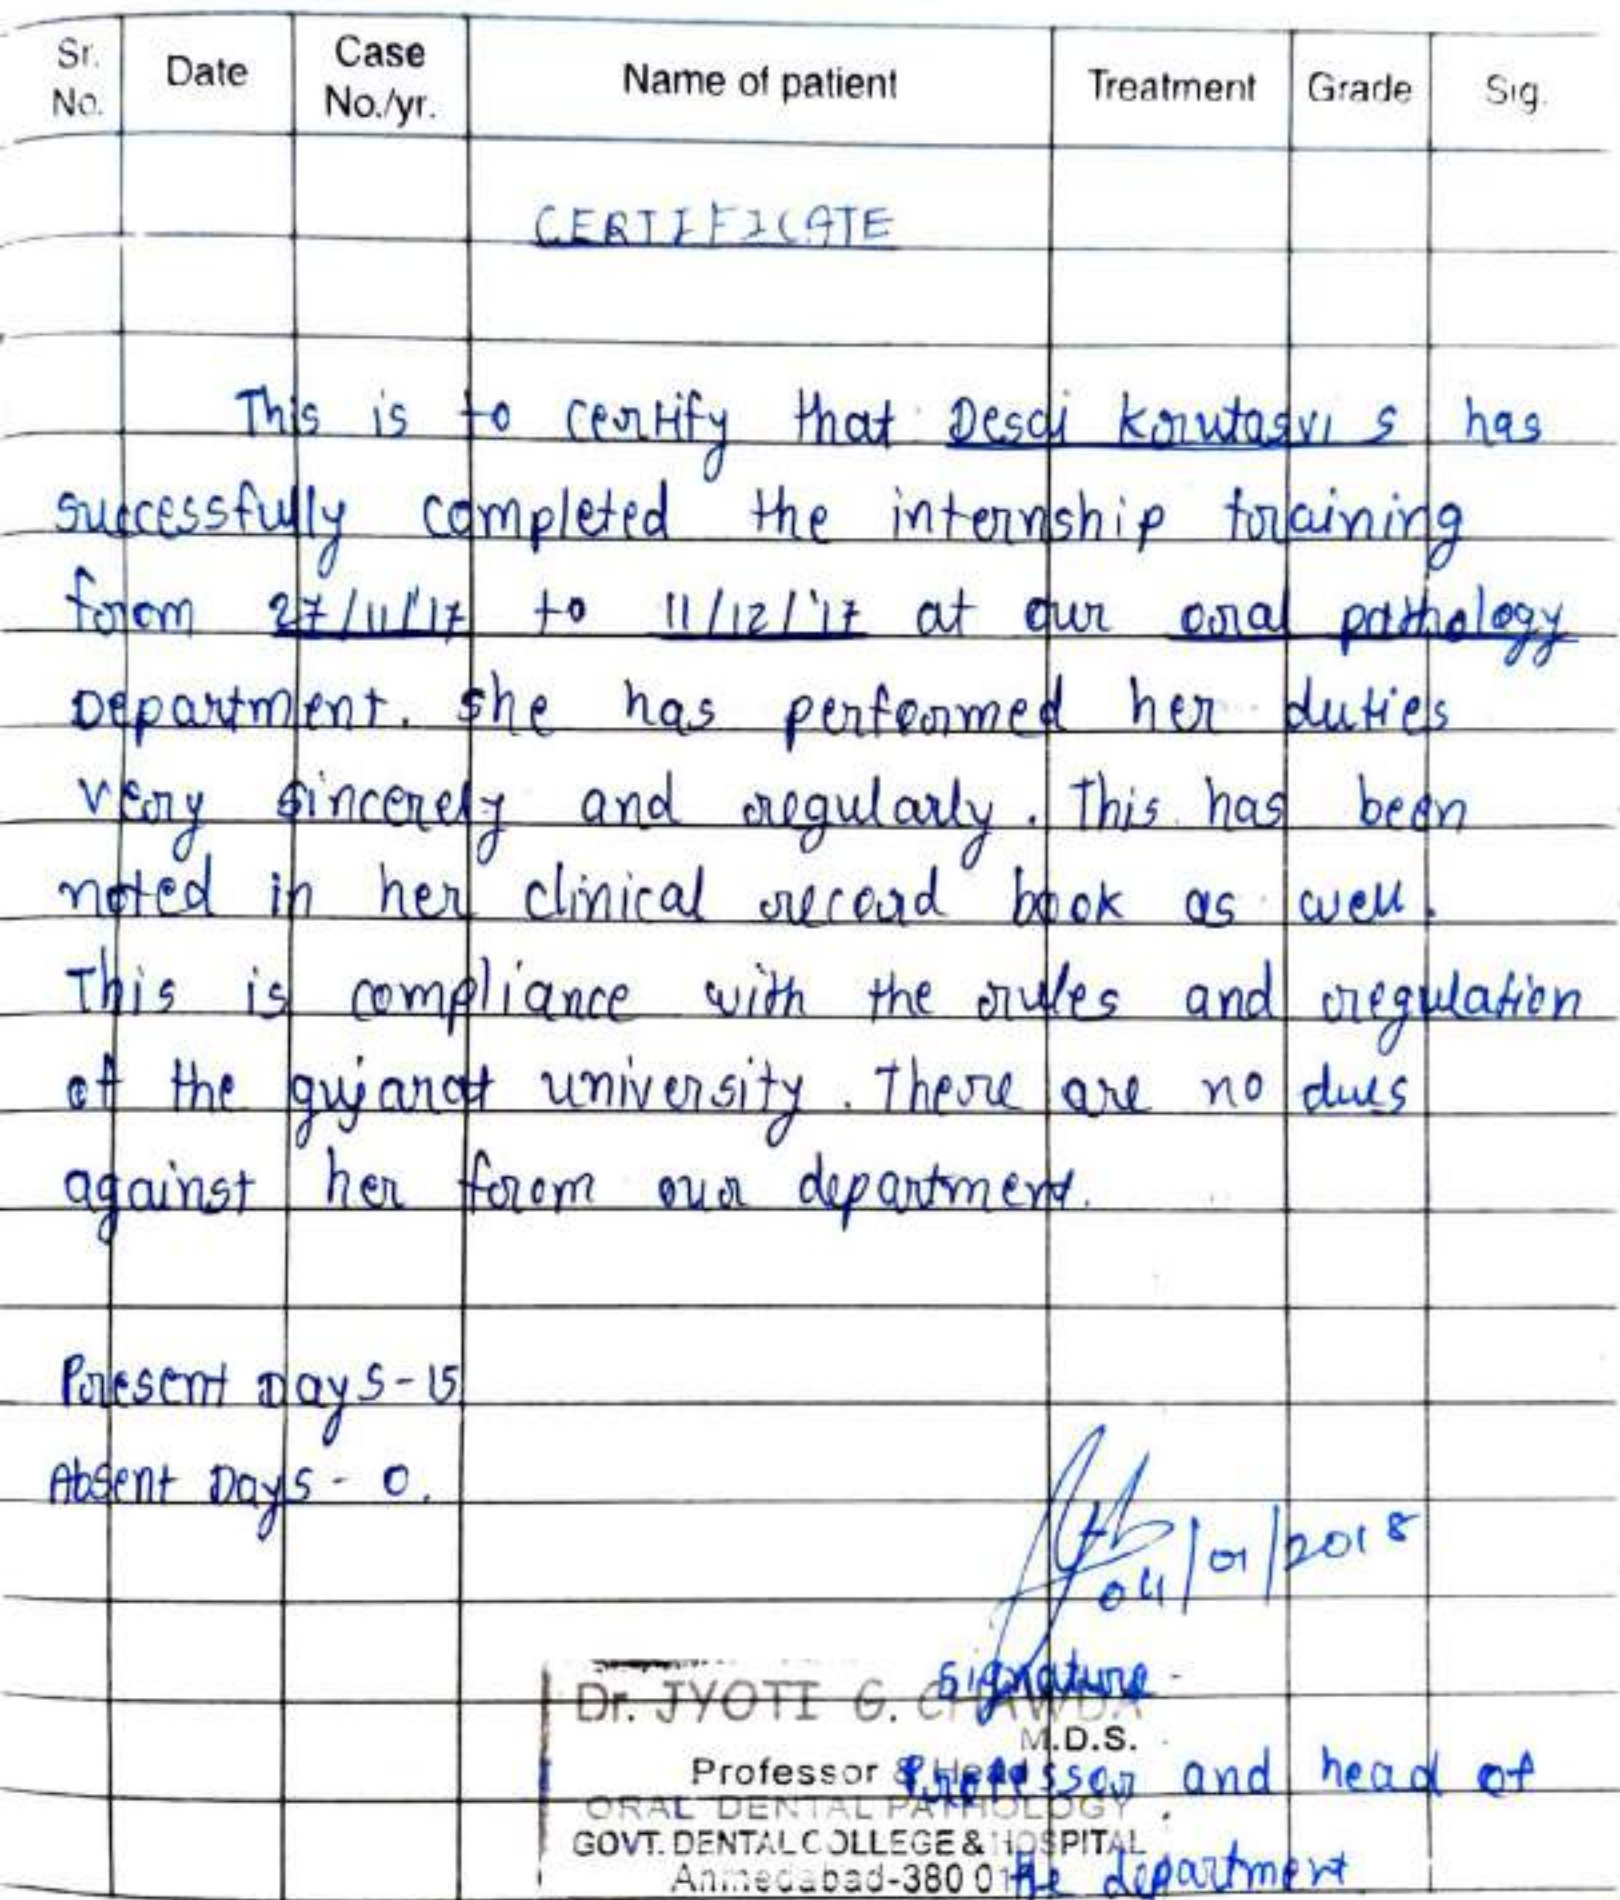 Sr. No. Date Case No./yr. Name of patient Treatment Grade Sig.
CERTIFICATE
This is to certify that Desai Krutasvi S has
successfully completed the internship training
from 27/11/'17 to 11/12/'17 at our oral pathology
Department. She has performed her duties
very sincerely and regularly. This has been
noted in her clinical record book as well.
This is compliance with the rules and regulation
of the gujarat university. There are no dues
against her from our department.
Present Days - 15
Absent Days - 0.
04/01/2018
Signature
Dr. JYOTI G. CHAWDA
M.D.S.
Professor & Head
Professor and head of
ORAL DENTAL PATHOLOGY
GOVT. DENTAL COLLEGE & HOSPITAL
Ahmedabad-380 01
the department